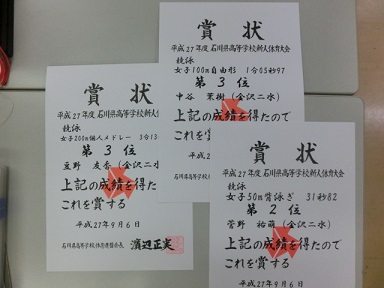 賞状
平成27年度 石川県高等学校新人
競泳
女子200m個人メドレー 3分13
第3位
豆野 友香 (金沢二水
上記の成績を得た
これを賞する
平成27年9月6日
石川県高等学校体育連盟会長 濵辺正実
賞状
平成27年度 石川県高等学校新人体育大会
競泳
女子100m自由形 1分05秒97
第3位
中谷 茉樹 (金沢二水)
上記の成績を得たので
これを賞
平成2
石川県高等学校
賞状
平成27年度 石川県高等学校新人体育大会
競泳
女子50m背泳ぎ 31秒82
第2位
菅野 祐萌 (金沢二水)
上記の成績を得たので
これを賞する
平成27年9月6日